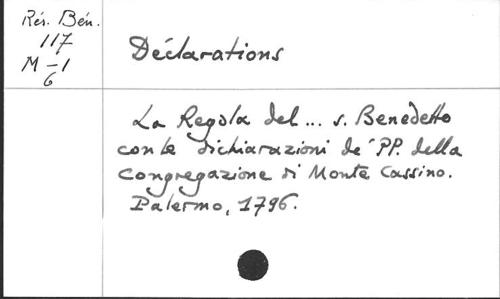 Rés. Bén.
117
M-1
6
Déclarations
La Regola del ... s. Benedetto
con le dichiarazioni de' PP. della
Congregazione di Monte Cassino.
Palermo, 1796.